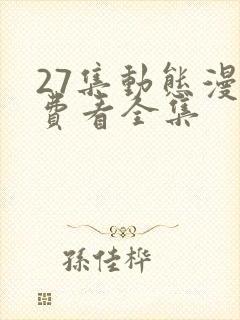 27集動態漫
費看全集
孫佳桦